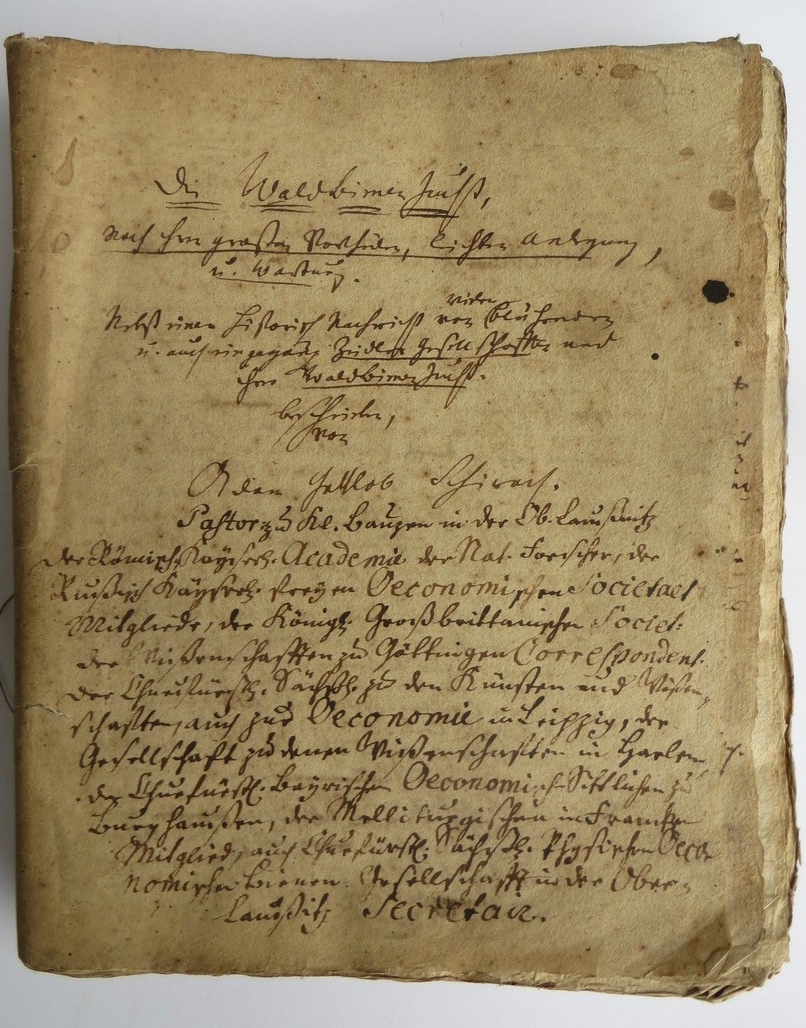 Die Waldbienenzucht,
Nach ihren großen Vortheilen, leichten Anlegung,
u. Wartung.
Nebst einer Historisch Nachricht von vielen blühenden
u. auch eingegang Zeidler Gesellschafften und
ihrer Waldbienenzucht.
beschrieben,
von
Adam Gottlob Schirach.
Pastor zu Kl. Bautzen in der Ob. Laußnitz
der Römisch. Kayserl. Academie der Nat. Forscher, der
Rußisch Käyserl. freyen Oeconomischen Societaet
Mitgliede, der Königl. Großbrittanischen Societ:
der Wißenschafften zu Göttingen Correspondent.
der Churfürstl. Sächßl. zu den Künsten und Wißen„
schafften, auch zur Oeconomie in Leipzig, der
Gesellschaft zu denen Wißenschaften in Harlem
der Churfürstl. Bayrischen Oeconomisch Sittlichen zu
Burghaußen, der Melliturgischen in Francken
Mitglied, auch Churfürstl. Sächßl. Physischen Oeco-
nomischen Bienen Gesellschafft in der Ober-
Laußitz Secretair.